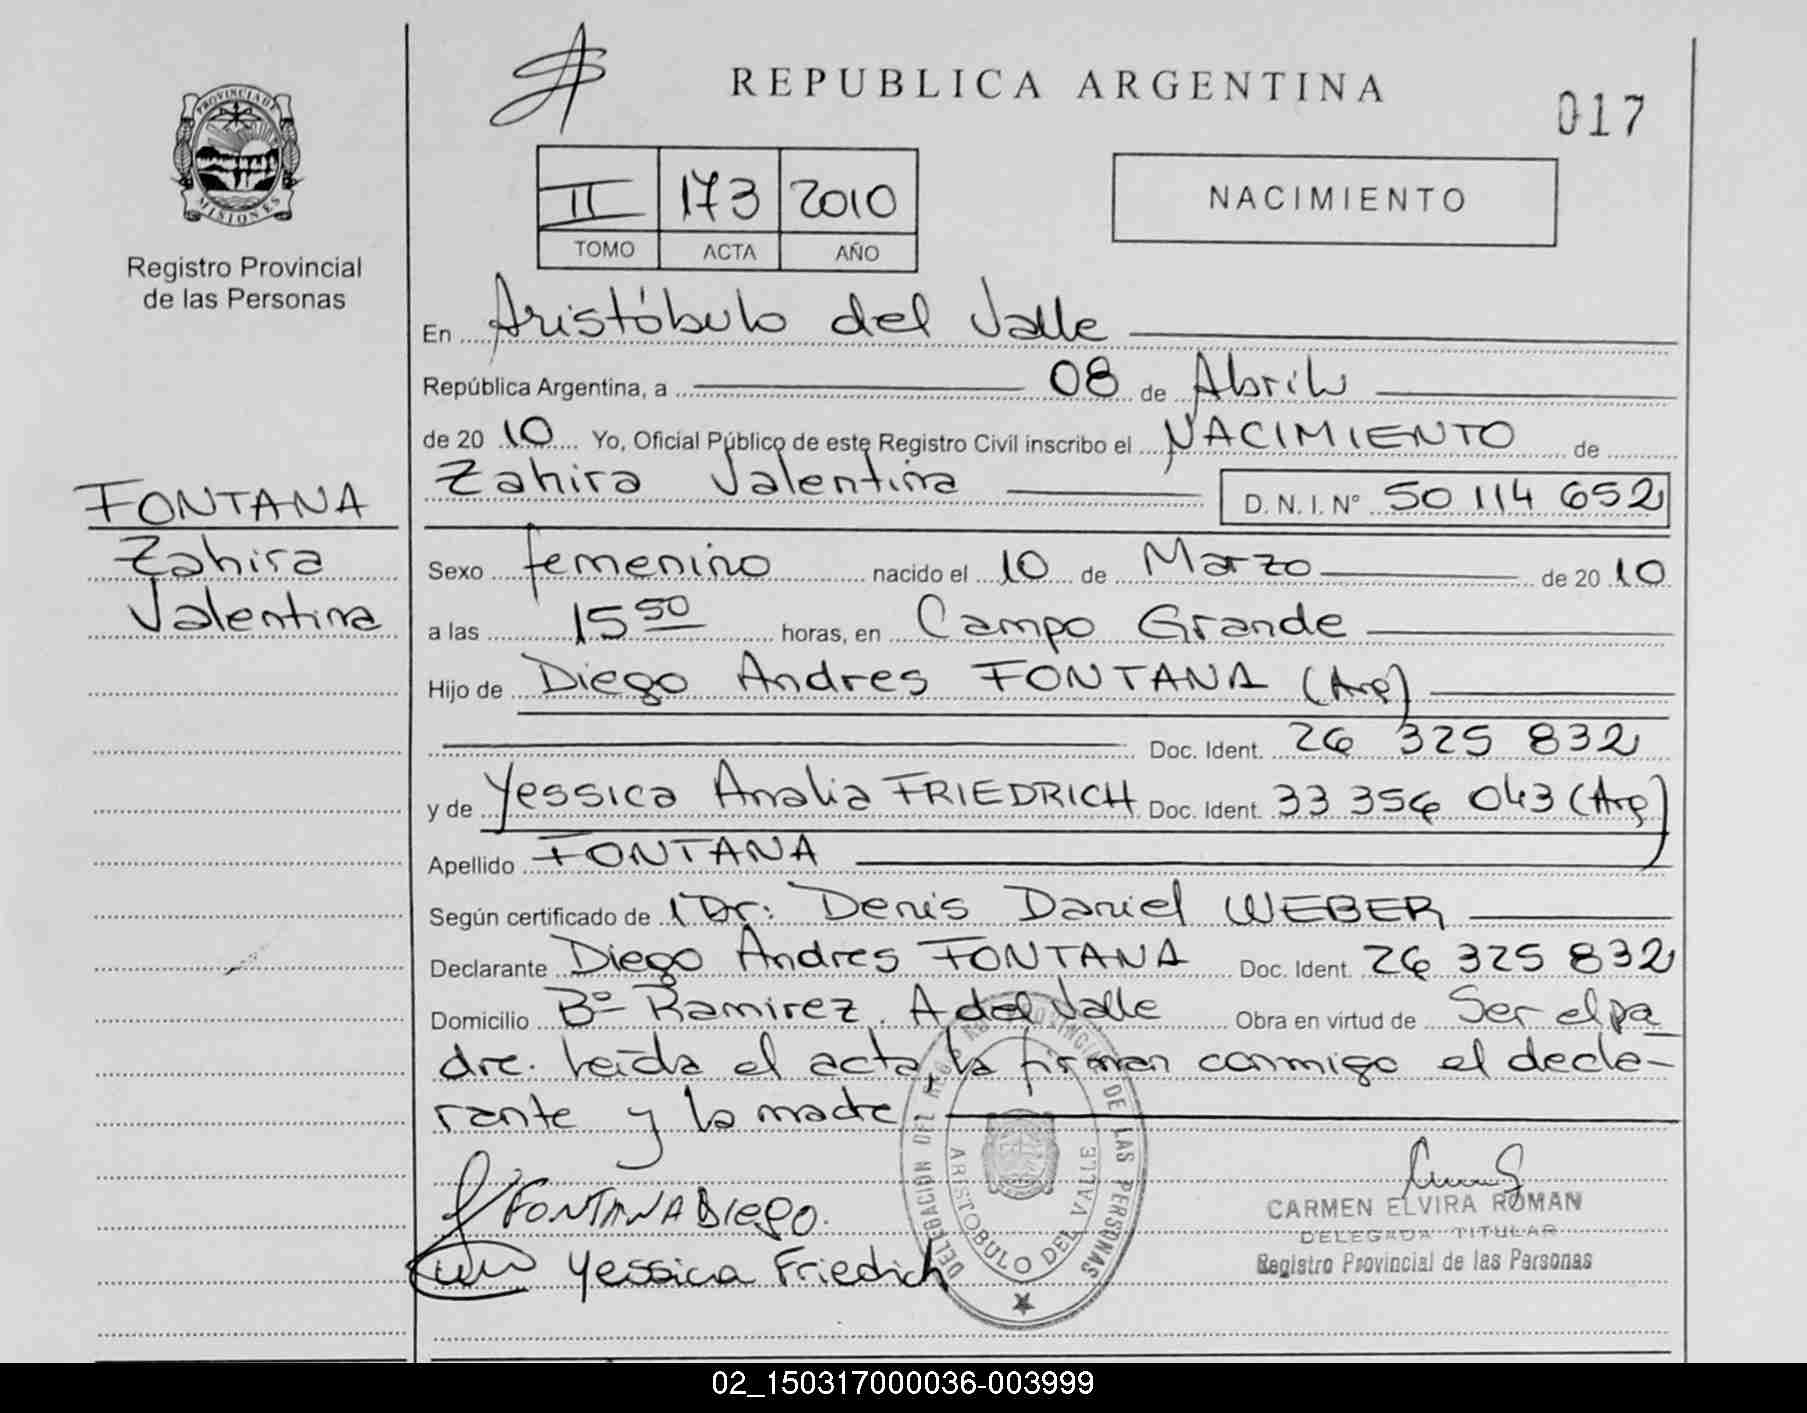 REPUBLICA ARGENTINA
017
PROVINCIA DE
MISIONES
Registro Provincial
de las Personas
II 173 2010
TOMO ACTA AÑO
NACIMIENTO
En Aristóbulo del Valle
República Argentina, a 08 de Abril
de 2010 Yo, Oficial Público de este Registro Civil inscribo el NACIMIENTO de
Zahira Valentina D. N. I. Nº 50 114 652
FONTANA
Zahira
Valentina
Sexo femenino nacido el 10 de Marzo de 2010
a las 15 50 horas, en Campo Grande
Hijo de Diego Andres FONTANA (Arg)
Doc. Ident. 26 325 832
y de Yessica Analia FRIEDRICH Doc. Ident. 33 356 043 (Arg)
Apellido FONTANA
Según certificado de Dr: Denis Daniel WEBER
Declarante Diego Andres FONTANA Doc. Ident. 26 325 832
Domicilio Bº Ramirez. A del Valle Obra en virtud de Ser el pa
dre. Leída el acta, la firman conmigo el decla-
rante y la madre
FONTANA DIEGO.
Yessica Friedich
DELEGACION DEL REGISTRO PROVINCIAL DE LAS PERSONAS
ARISTOBULO DEL VALLE
CARMEN ELVIRA ROMAN
DELEGADA TITULAR
Registro Provincial de las Personas
02_150317000036-003999